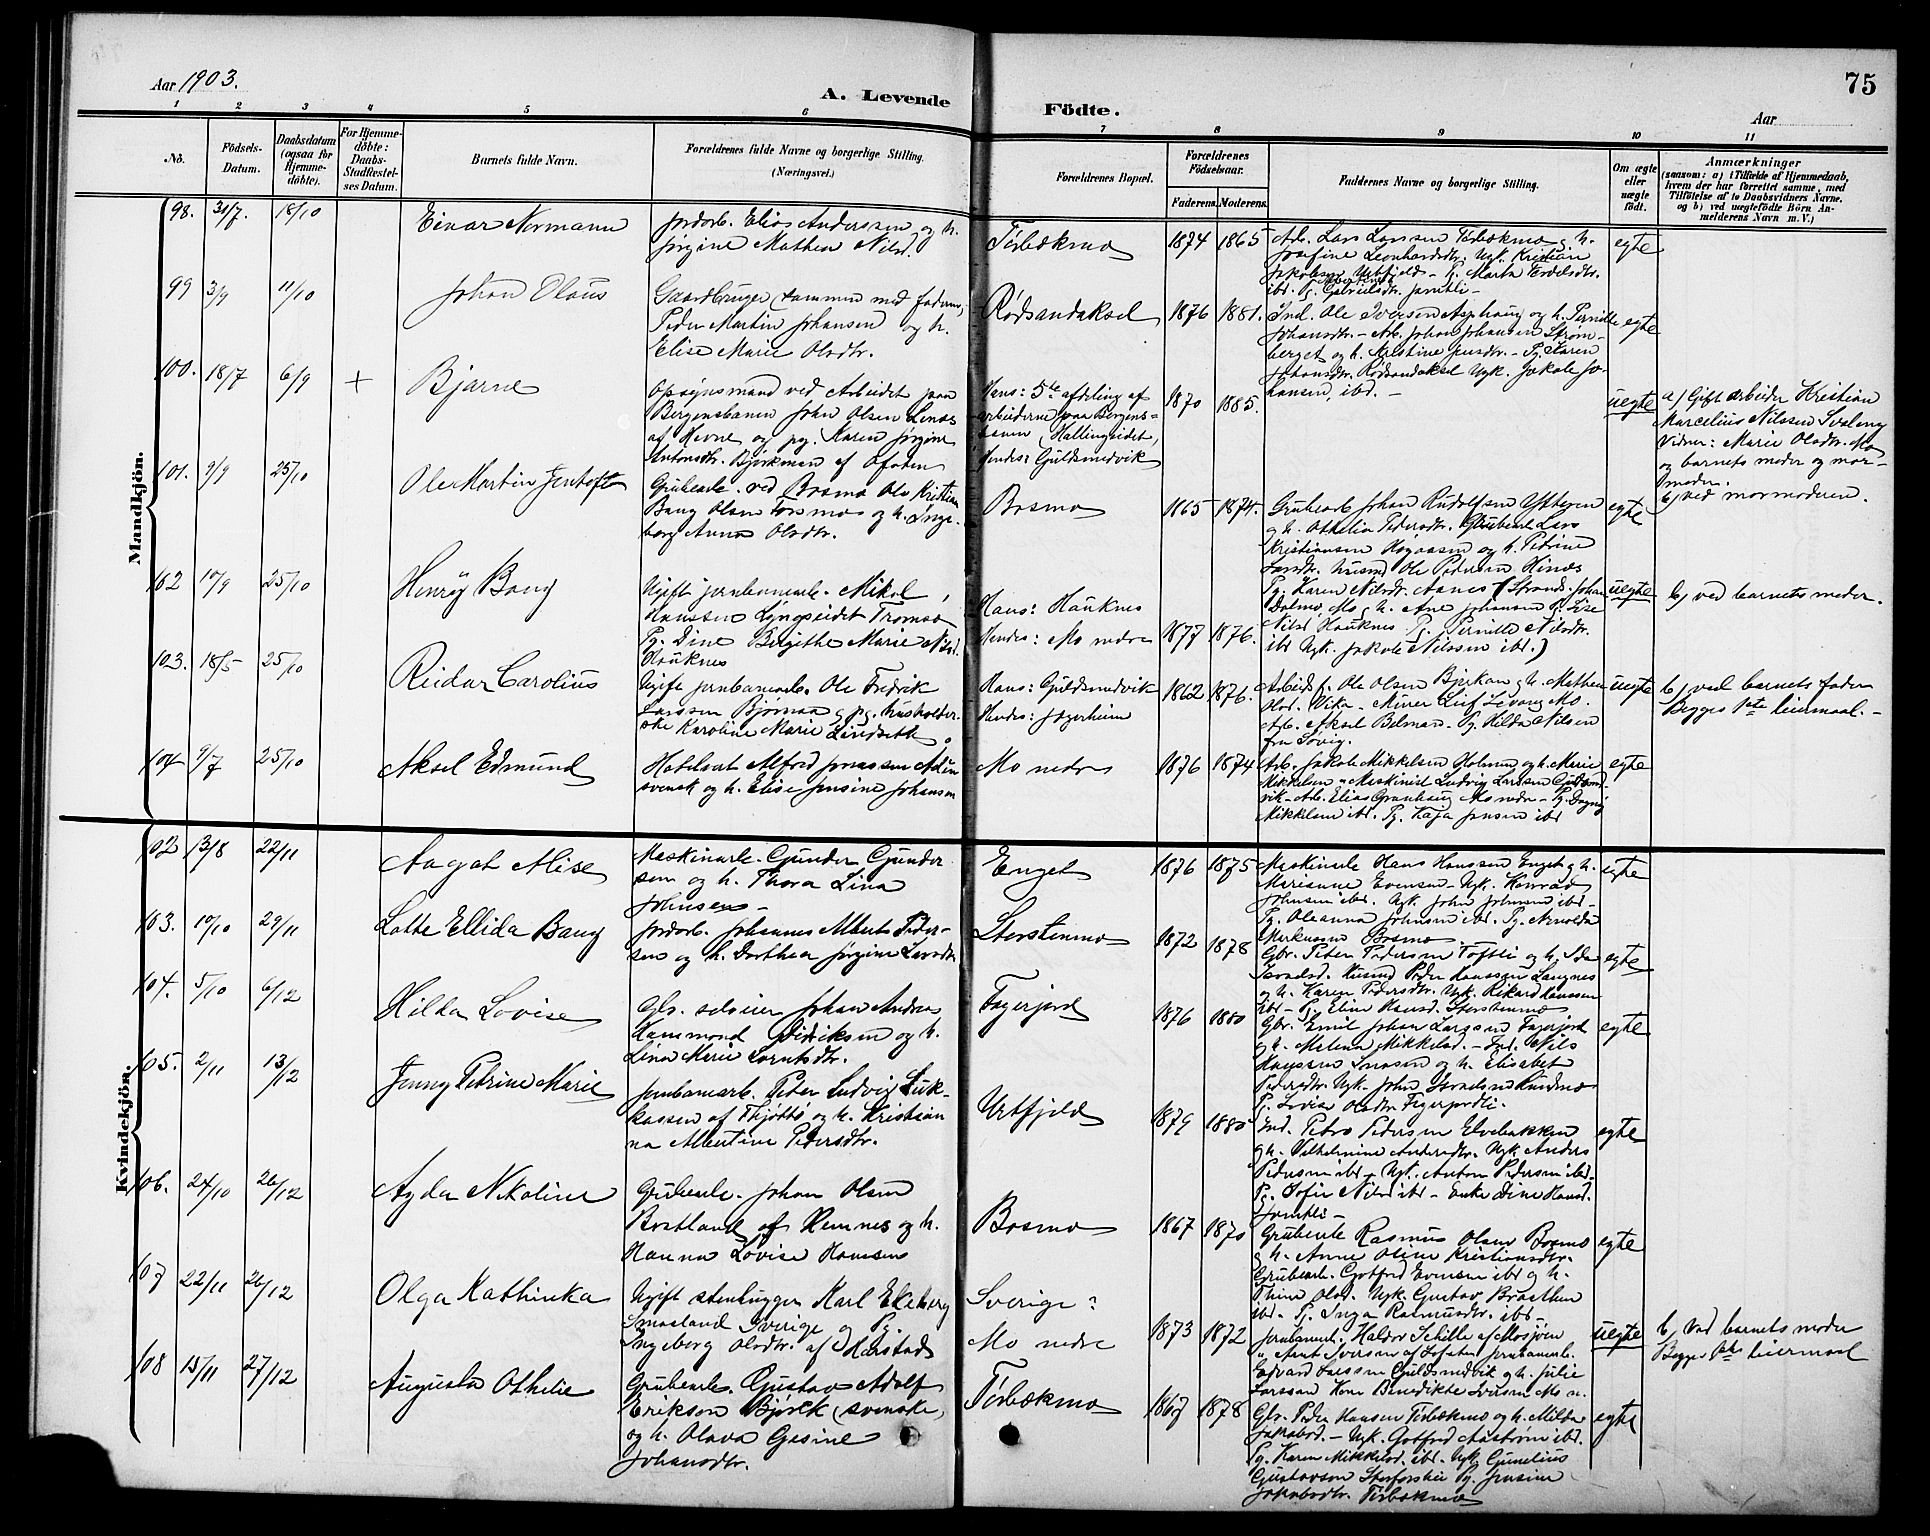 Aar 1903.
A. Levende Födte.
75
Aar
1 2 3 4 5 6 7 8 9 10 11
No.
Födsels-Datum.
Daabsdatum (ogsaa for Hjemme-döbte).
For Hjemme-döbte: Daabs-Stadfæstel-ses Datum.
Barnets fulde Navn.
Forældrenes fulde Navne og borgerlige Stilling. (Næringsvei.)
Forældrenes Bopæl.
Forældrenes Födselsaar.
Faderens. Moderens.
Faddernes Navne og borgerlige Stilling.
Om ægte eller uægte födt.
Anmærkninger
(saasom: a) i Tilfælde af Hjemmedaab,
hvem der har forrettet samme, med
Tilföielse af to Daabsvidners Navne.
og b) ved uægtefödte Börn An-
melderens Navn m. V.)
Mandkjön.
98. 31/7. 18/10
Einar Normann
Jordarb. Elias Anderssen og h.
Jørgine Mathea Nilsd.
Tørbækmo
1874 1865
Arb. Lars Larssen Tørbækmo og h.
Josefine Leonhardsdtr. Ugk. Kristian
Jakobsen Urtfjeld
ibd. Pg.
egte
99 3/9 11/10
Johan Olaus
Gaardbruger (sammen med faderen)
Peder Martin Johansen og h.
Elise Marie Olsdtr.
Rødsandaksel
1876 1881.
Ind. Ole Iversen Asphaug og h. Pernille
Johansdtr. – Arb. Johan Johansen Strøm-
berget og h. Kristine Jensdtr. – Pg. Karen
Johansdtr. Rødsandaksel Ugk. Jakob Jo-
hansen, ibd. –
egte
100. 18/7 6/9 +
Bjarne
Opsynsmand ved Arbeidet paa
Bergensbanen John Olsen Lenæs
af Hevne og pg. Karen Jørgine
Antonsdtr. Bjørkman af Ofoten
Hans: 5te afdeling af
arbeiderne paa Bergens-
banen, Hallingseidet,
Hendes: Guldsmedvik
1870 1885.
uegte
a) Gift arbeider Kristian
Marcelius Nilssen Svaleng
Vidner: Marie Olsdtr. Mo
og barnets moder og mor-
moder.
b) ved mormoderen.
101. 9/9 25/10
Ole Martin Jentoft
Grubearb. ved Bosmo Ole Kristian
Bang Olsen Forsmo og h. Inge-
borg Anna Olsdtr.
Bosmo
1865 1874.
Grubearb. Johan Rudolfsen Ytteren
og h. Othelia Pedersdtr. Grubearb. Lars
Kristiansen Høgaasen og h. Petrine
Larsdtr. husmd. Ole Pedersen
egte
102 10/9 25/10
Henrÿ Bang
Ugift jernbanearb. Mikal
Hanssen Lyngseidet Tromsø
Pg. Dine Birgithe Marie Nilsd.
Hauknes
Hans: Hauknes
Hendes: Mo nedre
1877 1876.
Pg. Karen Nilsdt.
Nilsd. Hauknes. Pg. Pernille Nilsdtr.
ibd. Ugk. Jakob Nilssen ibd.)
uegte
b) ved barnets moder.
103. 18/5 25/10
Reidar Carolius
Ugift jernbanearb. Ole Fredrik
Larssen Bjørnaa og pg. husholder-
ske Karoline Marie Lindseth.
Hans: Guldsmedvik
Hendes: Jagerheim
1862 1876.
Arbeids f. Ole Olsen Bjerkan og h. Mathea
Olsd. Vika – Minør Leif Levang Mo.
Arb. Aksel Belmar – Pg. Hilda Nilsen
fra Løvig.
uegte
b) ved barnets fader
Begges 1ste leiermaal. –
104 9/7 25/10
Aksel Edmund
Hotelvært Alfred Jonassen
svensk og h. Elise Jensine Johansen
Mo nedre
1876 1874
Arb. Jakob Mikkelsen Holmen og h. Marie
Mikkelsen – Maskinist Ludvig Larssen Guldsmed-
vik – Arb. Elias Grønhaug Mo nedre – Pg. Dagny
Mikkelsen ibd. Pg. Kaja Jensen ibd
egte
Kvindekjön.
102 13/8 22/11
Aagot Alise
Maskinarb. Gunder Gunder-
sen og h. Thora Lina
Johnsen –
Enget
1876 1875
Maskinarb. Hans Hanssen Enget og h.
Marianne Evensen – Ugk. Konrad
Johnsen ibd. Ugk. John Johnsen ibd –
Pg. Oleanna Johnsen ibd. Pg. Arnolda
Markussen Bosmo
egte
103. 10/10 29/11
Lotte Ellida Bang
Jordarb. Johannes Albert Peder-
sen og h. Dorthea Jørgine Larsdtr
Storstenmo
1872 1878
Gbr. Peter Pedersen Toftli og h. Ida
Husmd. Peder Hanssen Langnes
og h. Karen Pedersdtr. Ugk. Rikard Hanssen
ibd – Pg. Eline Hansd. Storstenmo
egte
104. 5/10 6/12
Hilda Lovise
Gbr. selveier Johan Andreas
Hammond Didriksen og h.
Lina Marie Lorntsdtr.
Fagerjord
1876 1880
Gbr. Emil Johan Larssen Fagerjord
og h. Malena Mikkelsd. – Ind. Nils
Hanssen og h. Elisabet
Pedersdtr. Ugk. John Israelsen
Pg. Lovise Olsdtr. Fagerjordli.
egte
105. 2/11 13/12
Jenny Petrine Marie
Jernbanearb. Peter Ludvig Luk-
kassen af Thjøttø og h. Kristian-
na Albertine Pedersdtr.
Urtfjeld
1879 1880
Ind. Petro Pedersen Elvebakken
og h. Vilhelmine Andersdtr. Ugk Anders
Pedersen ibd. Ugk. Anton Pedersen ibd.
Pg. Sofie Nilsd ibd – Enke Dine Hansd.
egte
106. 24/10 26/12
Agda Nikoline
Grubearb. Johan Olsen
Bratland af Hemnes og h.
Hanna Lovise Hansen
Bosmo
1867 1870
Grubearb. Rasmus Olsen Bosmo
og h. Anne Oline Kristiansdtr.
Grubearb. Gotfred Evensen ibd og h.
Thine Olsd. Ugk. Gustav Braathen
ibd. Pg. Inga Rasmusdtr. ibd –
egte
107 22/11 26/12
Olga Kathinka
Ugift stenhugger Karl Ekeberg
Smaaland Sverige og Pg.
Ingeborg Olsdtr. af Harstad
Sverige?
Mo nedre
1873 1872
Jernbanearb. Haldor Schille af Mosjøen
„ Arnt Iversen af Lofoten Jernbanearb.
Edvard Larssen Guldsmedvik og h. Julie
Larssen Kone Benedikte Iversen Mo n.
uegte
b) Ved barnets moder
Begges 1ste leiermaal
108 15/11 27/12
Augusta Othelie
Grubearb. Gustav Adolf
Erikson Bjørck (svenske)
og h. Olava Gesine
Johansdtr.
Tørbækmo
1867 1878
Gbr. Peder Hansen Tørbækmo og h. Milda
Jakobsd. – Ugk. Gotfred Aastrøm ibd.
Pg. Karen Mikkelsd. ibd. Ugk Gunelius
Gustavson Storforshei Pg. Jensine
Jakobsdtr. Tørbækmo
egte